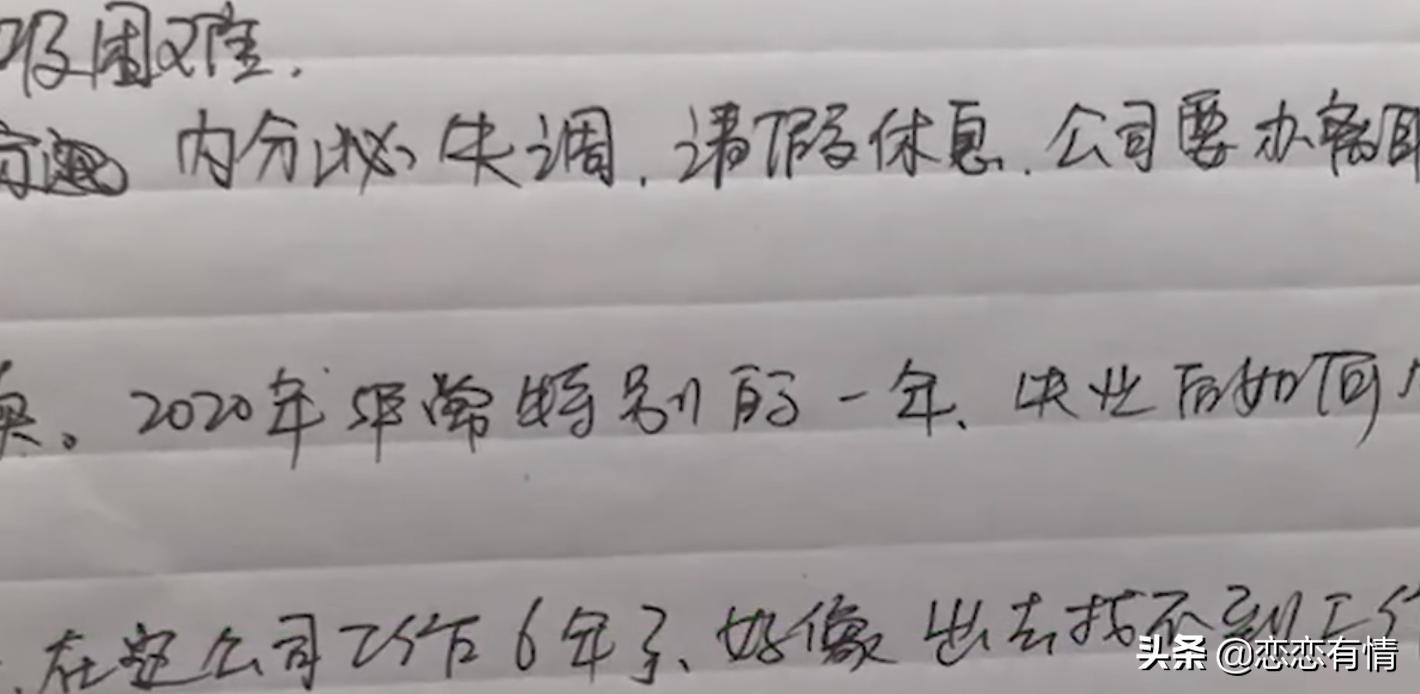 吸困难.
内分泌失调.请假休息.公司要办离职
。2020年非常特别的一年、失业后如何
在这公司工作6年了、好像出去找不到工作
头条 @恋恋有情